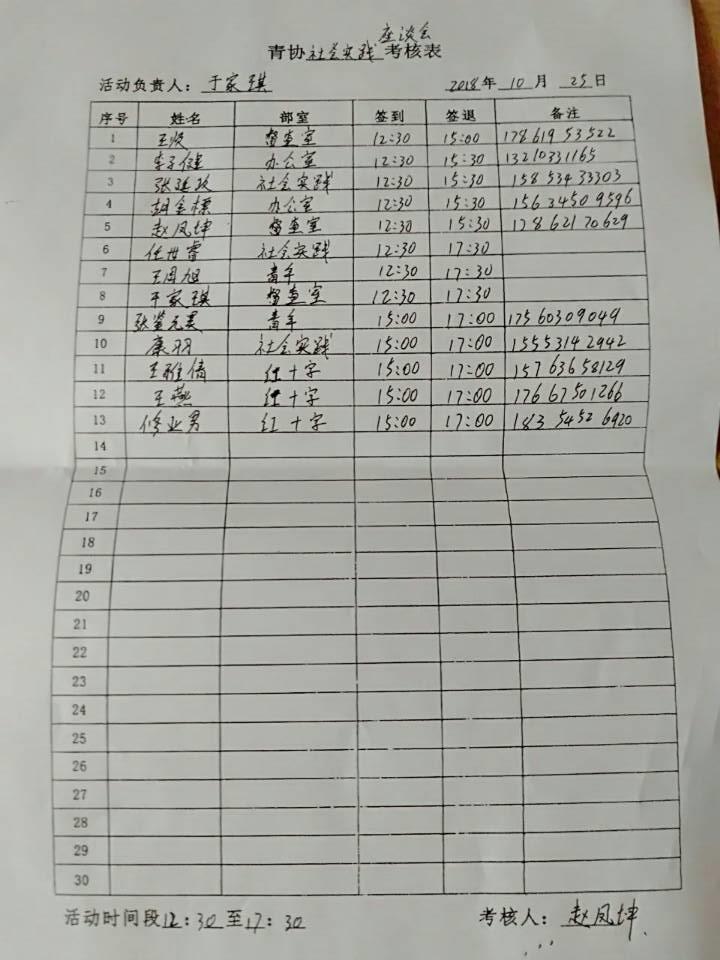 座谈会
青协社会实践考核表
活动负责人：于家琪 2018年 10 月 25日
序号 姓名 部室 签到 签退 备注
1 王 督查室 12:30 15:00 17861953522
2 李子健 办公室 12:30 15:30 13210331165
3 张 社会实践 12:30 15:30 15853433303
4 胡金標 办公室 12:30 15:30 15634509596
5 赵凤坤 督查室 12:30 15:30 17862170629
6 任世睿 社会实践 12:30 17:30
7 王周旭 青年 12:30 17:30
8 于家琪 督查室 12:30 17:30
9 张 青年 15:00 17:00 17560309049
10 康羽 社会实践 15:00 17:00 15553142942
11 王雅倩 红十字 15:00 17:00 15763658129
12 王燕 红十字 15:00 17:00 17667501266
13 修亚男 红十字 15:00 17:00 18354526920
14
15
16
17
18
19
20
21
22
23
24
25
26
27
28
29
30
活动时间段12：30至17：30 考核人：赵凤坤